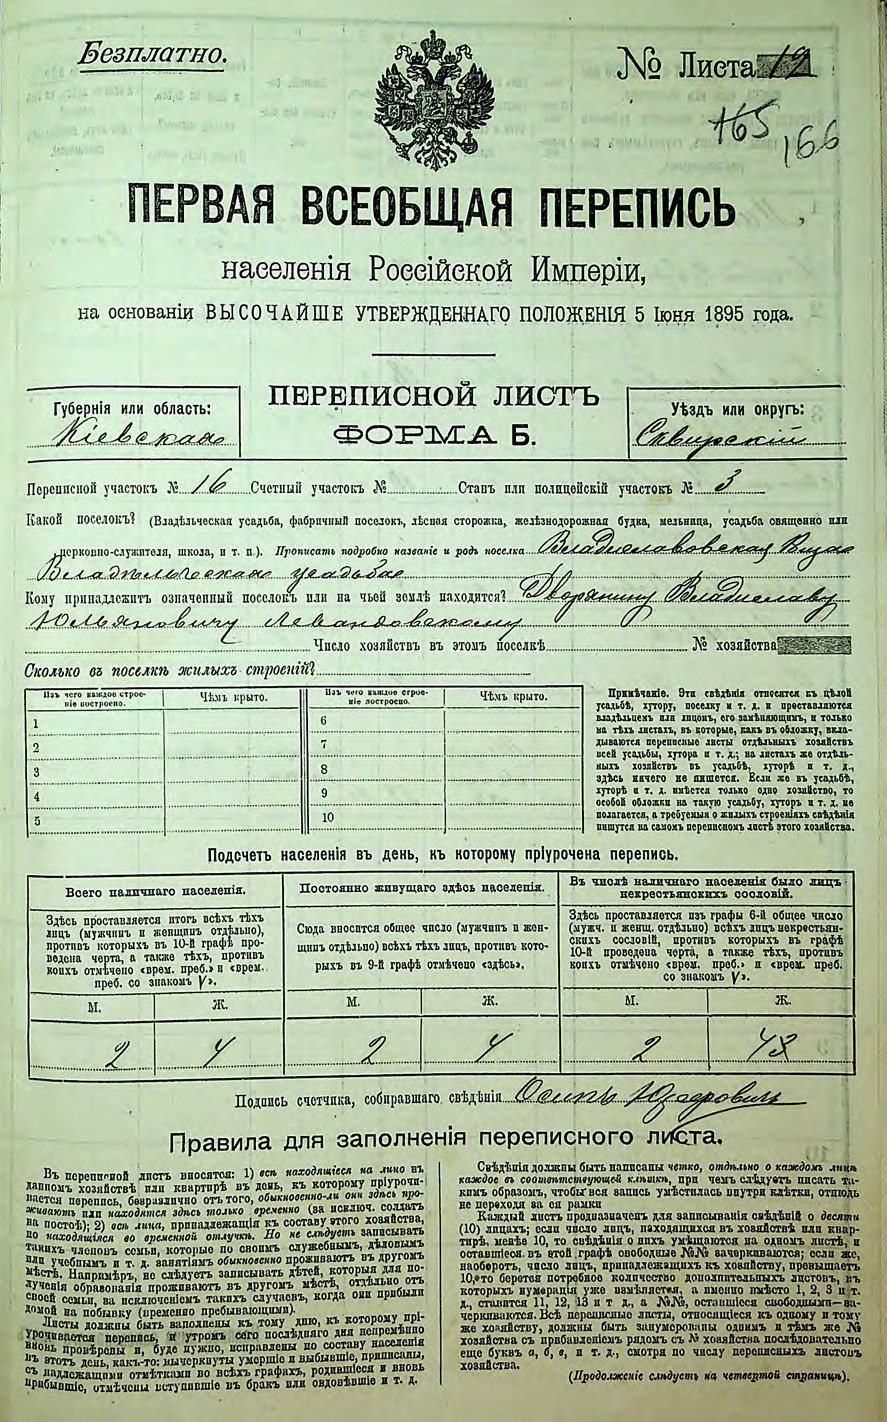 Безплатно.
№ Листа 12
165
166
ПЕРВАЯ ВСЕОБЩАЯ ПЕРЕПИСЬ
населенія Россійской Имперіи,
на основаніи ВЫСОЧАЙШЕ УТВЕРЖДЕННАГО ПОЛОЖЕНІЯ 5 Іюня 1895 года.
Губернія или область:
Кіевская
ПЕРЕПИСНОЙ ЛИСТЪ
ФОРМА Б.
Уѣздъ или округъ:
Сквирскій
Переписной участокъ № 16 Счетный участокъ № Станъ или полицейскій участокъ № 3
Какой поселокъ? (Владѣльческая усадьба, фабричный поселокъ, лѣсная сторожка, желѣзнодорожная будка, мельница, усадьба священно или
церковно-служителя, школа, и т. п.). Прописать подробно названіе и родъ поселка Владиславовская
Владѣльческая усадьба
Кому принадлежитъ означенный поселокъ или на чьей землѣ находится? Дворянину Владиславу
Юльяновичу Левандовскому
Число хозяйствъ въ этомъ поселкѣ № хозяйства
Сколько въ поселкѣ жилыхъ строеній?
Изъ чего каждое строеніе построено.
Чѣмъ крыто.
Изъ чего каждое строеніе построено.
Чѣмъ крыто.
1 6
2 7
3 8
4 9
5 10
Примѣчаніе. Эти свѣдѣнія относятся къ цѣлой
усадьбѣ, хутору, поселку и т. д. и преставляются
владѣльцемъ или лицомъ, его замѣняющимъ, и только
на тѣхъ листахъ, въ которые, какъ въ обложку, вкла-
дываются переписные листы отдѣльныхъ хозяйствъ
всей усадьбы, хутора и т. д.; на листахъ же отдѣль-
ныхъ хозяйствъ въ усадьбѣ, хуторѣ и т. д.,
здѣсь ничего не пишется. Если же въ усадьбѣ,
хуторѣ и т. д. имѣется только одно хозяйство, то
особой обложки на такую усадьбу, хуторъ и т. д. не
полагается, а требуемыя о жилыхъ строеніяхъ свѣдѣнія
пишутся на самомъ переписномъ листѣ этого хозяйства.
Подсчетъ населенія въ день, къ которому пріурочена перепись.
Всего наличнаго населенія.
Здѣсь проставляется итогъ всѣхъ тѣхъ
лицъ (мужчинъ и женщинъ отдѣльно),
противъ которыхъ въ 10-й графѣ про-
ведена черта, а также тѣхъ, противъ
коихъ отмѣчено «врем. преб.» и «врем.
преб. со знакомъ V».
Постоянно живущаго здѣсь населенія.
Сюда вносится общее число (мужчинъ и жен-
щинъ отдѣльно) всѣхъ тѣхъ лицъ, противъ кото-
рыхъ въ 9-й графѣ отмѣчено «здѣсь».
Въ числѣ наличнаго населенія было лицъ
некрестьянскихъ сословій.
Здѣсь проставляется изъ графы 6-й общее число
(мужч. и женщ. отдѣльно) всѣхъ лицъ некрестьян-
скихъ сословій, противъ которыхъ въ графѣ
10-й проведена черта, а также тѣхъ, противъ
коихъ отмѣчено «врем. преб.» и «врем. преб.
со знакомъ V».
М. Ж. М. Ж. М. Ж.
2 4 2 4 2 43
Подпись счетчика, собиравшаго свѣдѣнія Осипъ
Правила для заполненія переписного листа.
Въ переписной листъ вносятся: 1) всѣ находящіеся на лицо въ
данномъ хозяйствѣ или квартирѣ въ день, къ которому пріурочи-
вается перепись, безразлично отъ того, обыкновенно-ли они здѣсь про-
живаютъ или находятся здѣсь только временно (за исключ. солдатъ
на постоѣ); 2) всѣ лица, принадлежащія къ составу этого хозяйства,
но находящіяся во временной отлучкѣ. Но не слѣдуетъ записывать
такихъ членовъ семьи, которые по своимъ служебнымъ, дѣловымъ
или учебнымъ и т. д. занятіямъ обыкновенно проживаютъ въ другомъ
мѣстѣ. Напримѣръ, не слѣдуетъ записывать дѣтей, которыя для по-
лученія образованія проживаютъ въ другомъ мѣстѣ, отдѣльно отъ
своей семьи, за исключеніемъ такихъ случаевъ, когда они прибыли
домой на побывку (временно пребывающими).
Листы должны быть заполнены къ тому дню, къ которому прі-
урочивается перепись, и утромъ сего послѣдняго дня непремѣнно
вновь провѣрены и, буде нужно, исправлены по составу населенія
въ этотъ день, какъ-то: вычеркнуты умершіе и выбывшіе, приписаны,
съ надлежащими отмѣтками во всѣхъ графахъ, родившіеся и вновь
прибывшіе, отмѣчены вступившіе въ бракъ или овдовѣвшіе и т. д.
Свѣдѣнія должны быть написаны четко, отдѣльно о каждомъ лицѣ
каждое въ соотвѣтствующей клѣткѣ, при чемъ слѣдуетъ писать та-
кимъ образомъ, чтобы вся запись умѣстилась внутри клѣтки, отнюдь
не переходя за ея рамки
Каждый листъ предназначенъ для записыванія свѣдѣній о десяти
(10) лицахъ; если число лицъ, находящихся въ хозяйствѣ или квар-
тирѣ, менѣе 10, то свѣдѣнія о нихъ умѣщаются на одномъ листѣ, и
оставшіеся въ этой графѣ свободные №№ зачеркиваются; если же,
наоборотъ, число лицъ, принадлежащихъ къ хозяйству, превышаетъ
10, то берется потребное количество дополнительныхъ листовъ, въ
которыхъ нумерація уже измѣняется, а именно вмѣсто 1, 2, 3 и т.
д., ставится 11, 12, 13 и т д., а №№, оставшіеся свободными—за-
черкиваются. Всѣ переписные листы, относящіеся къ одному и тому
же хозяйству, должны быть занумерованы однимъ и тѣмъ же №
хозяйства съ прибавленіемъ рядомъ съ № хозяйства послѣдовательно
еще буквъ а, б, в, и т. д., смотря по числу переписныхъ листовъ
хозяйства.
(Продолженіе слѣдуетъ на четвертой страницѣ).